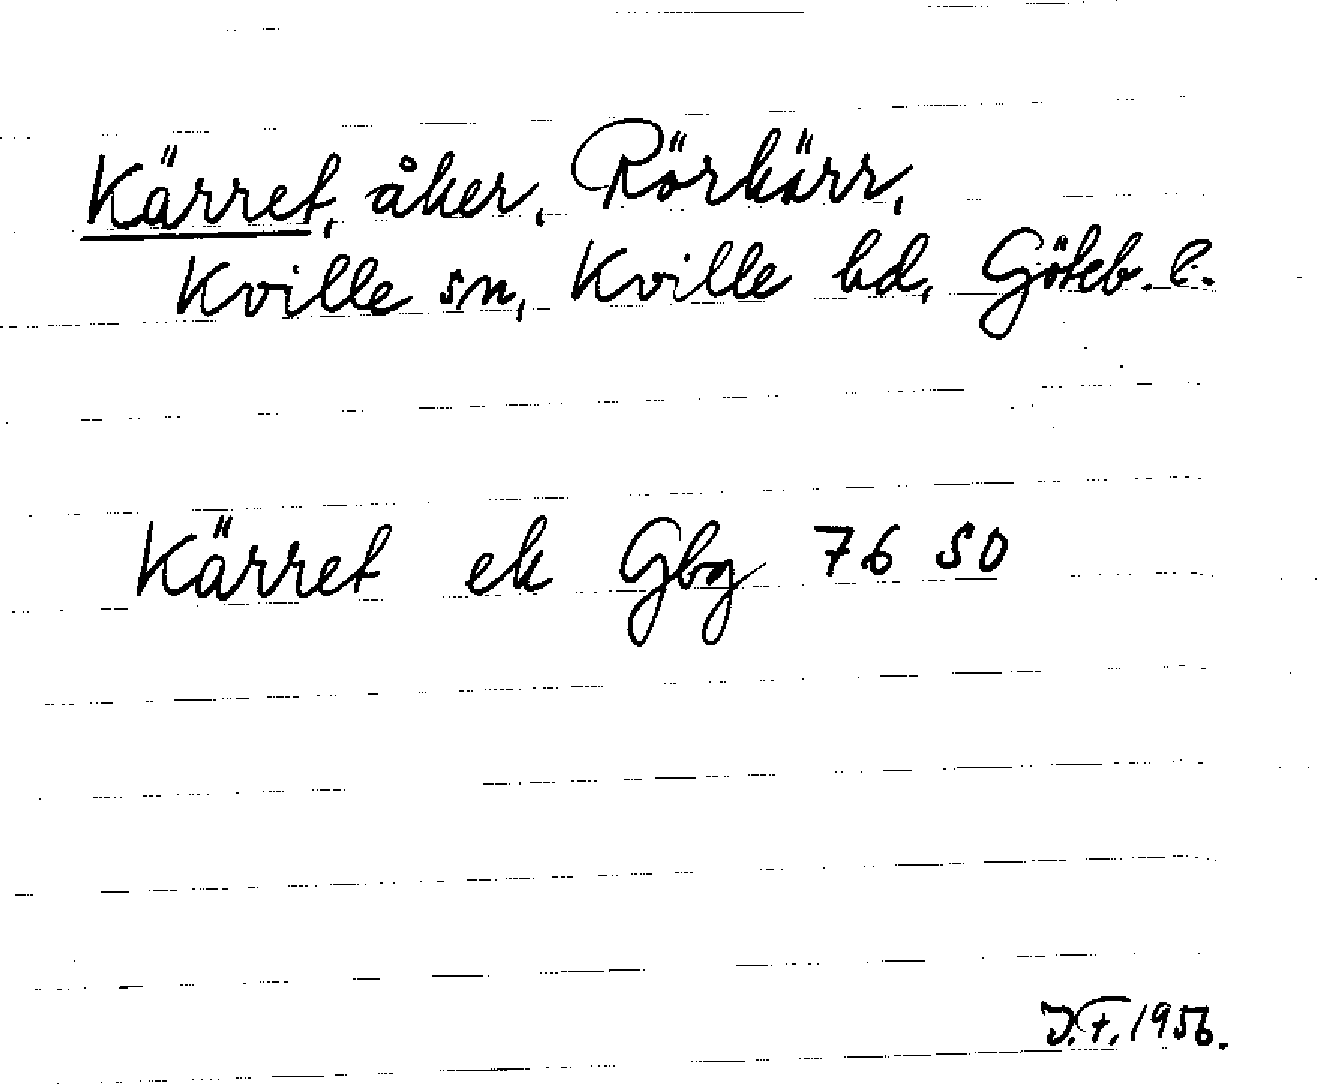 Kärret, åker, Rörkärr,
Kville sn, Kville hd, Göteb. l.
Kärret ek Gbg 76 50
J.F. 1956.